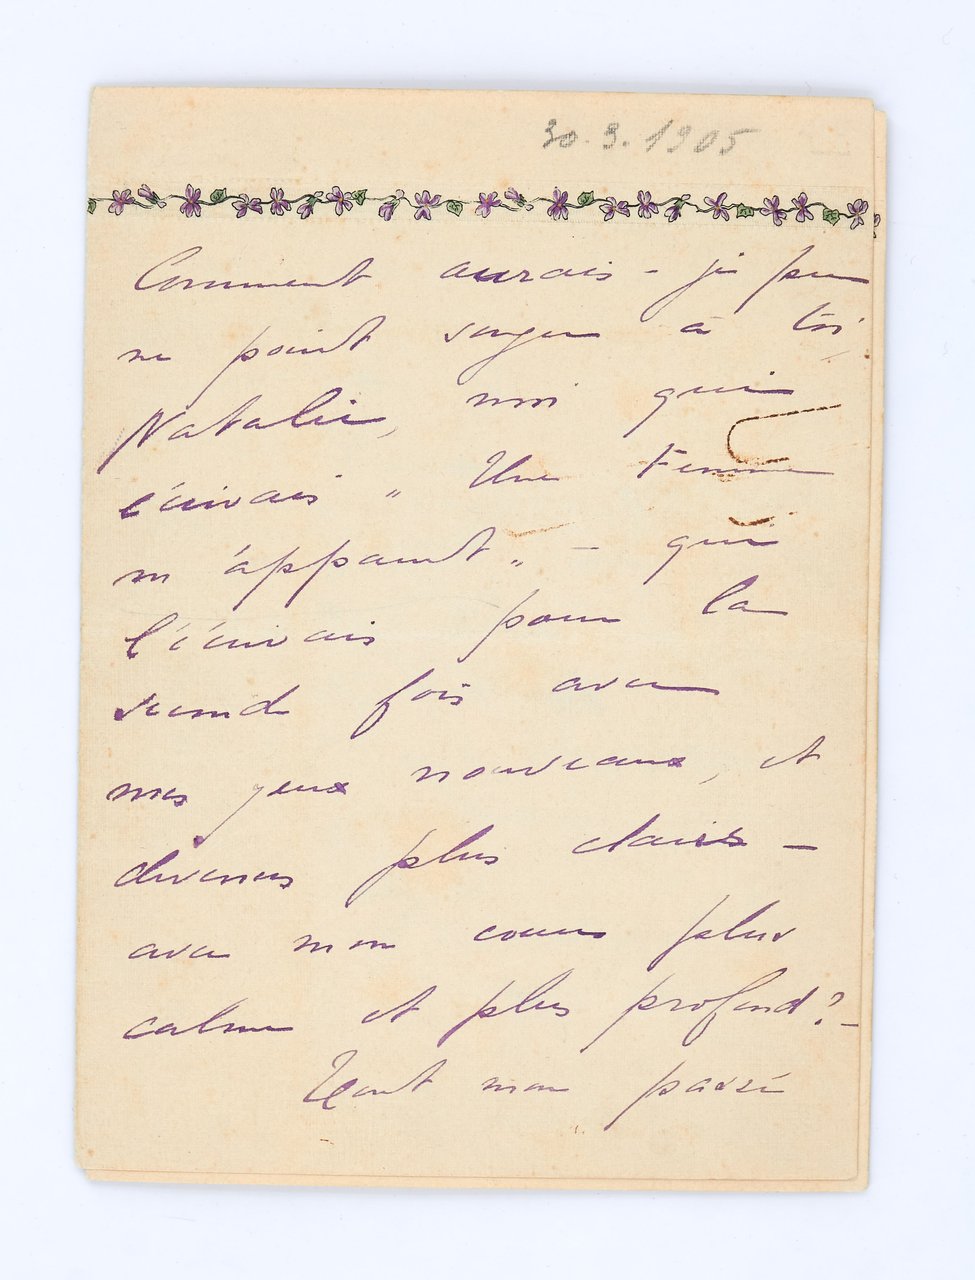 30.3.1905
Comment aurais-je pu
ne point songer à toi
Natalie, moi qui
écrivais "Une Femme
m'apparut" - qui
l'écrivais pour la
seconde fois avec
mes yeux nouveaux, et
devenus plus clairs -
avec mon cœur plus
calme et plus profond? -
Tout mon passé